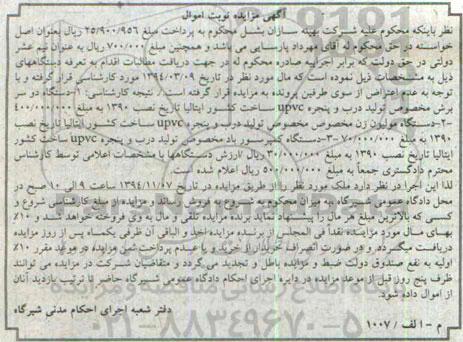 آگهی مزایده نوبت اموال
نظر باینکه محکوم علیه شرکت بهینه سازان بشل محکوم به پرداخت مبلغ ۲۵/۹۰۰/۹۵۶ ریال بعنوان اصل
خواسته در حق محکوم له آقای مهرداد پارسایی می باشد و همچنین مبلغ ۷۰۰/۰۰۰ ریال به عنوان نیم عشر
دولتی در حق دولت که برابر اجراییه صادره محکوم له در جهت دریافت مطالبات اقدام به تعرفه دستگاههای
ذیل به مشخصات ذیل نموده است که مال مورد نظر در تاریخ ۱۳۹۴/۰۳/۰۹ مورد کارشناسی قرار گرفته و با
توجه به عدم اعتراض از سوی طرفین پرونده به مزایده قرار گرفته است. نتیجه کارشناسی: ۱-دستگاه دو سر
برش مخصوص تولید درب و پنجره upvc ساخت کشور ایتالیا تاریخ نصب ۱۳۹۰ به مبلغ ۴۰۰/۰۰۰/۰۰۰
-۲-دستگاه مولیون زن مخصوص مخصوص تولید درب و پنجره upvc ساخت کشور ایتالیا تاریخ نصب
۱۳۹۰ به مبلغ ۷۰/۰۰۰/۰۰۰-۳-دستگاه کمپرسور باد مخصوص تولید درب و پنجره upvc ساخت کشور
ایتالیا تاریخ نصب ۱۳۹۰ به مبلغ ۳۰/۰۰۰/۰۰۰ ریال ارزش دستگاهها با مشخصات اعلامی توسط کارشناس
محترم دادگستری جمعاً به مبلغ ۵۰۰/۰۰۰/۰۰۰ ریال اعلام شده است.
لذا این اجرا در نظر دارد ملک مورد نظر را از طریق مزایده در تاریخ ۱۳۹۴/۱۱/۰۷ ساعت ۹ الی ۱۰ صبح در
محل دادگاه عمومی شیرگاه به میزان محکوم به شروع و بفروش رساند و مزایده از مبلغ کارشناسی شروع و
کسی که بالاترین مبلغ هر مال را پیشنهاد نماید برنده مزایده تلقی و مال به وی فروخته خواهد شد و ۱۰٪
بهای مال مورد مزایده نقداً فی المجلس از برنده مزایده اخذ و الباقی آن ظرفی یکماه پس از روز مزایده
دریافت میگردد و در صورت انصراف خریدار از خرید و یا عدم پرداخت ثمن مزایده در موعد مقرر ۱۰٪
اولیه به نفع صندوق دولت ضبط و مزایده باطل و تجدید می گردد و متقاضیان شرکت در مزایده می توانند
ظرف پنج روز قبل از موعد مزایده در دایره اجرای احکام دادگاه عمومی شیرگاه حاضر تا ترتیب بازدید آنان
از اموال داده شود.
دفتر شعبه اجرای احکام مدنی شیرگاه
م - الف / ۱۰۰۷
۰۲۱-۸۸۳۴۹۶۷۰-۵